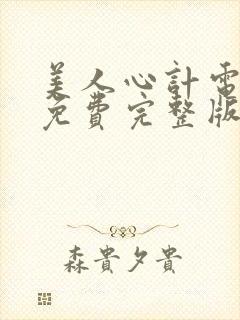 美人心計電
免費完整版
森貴夕貴